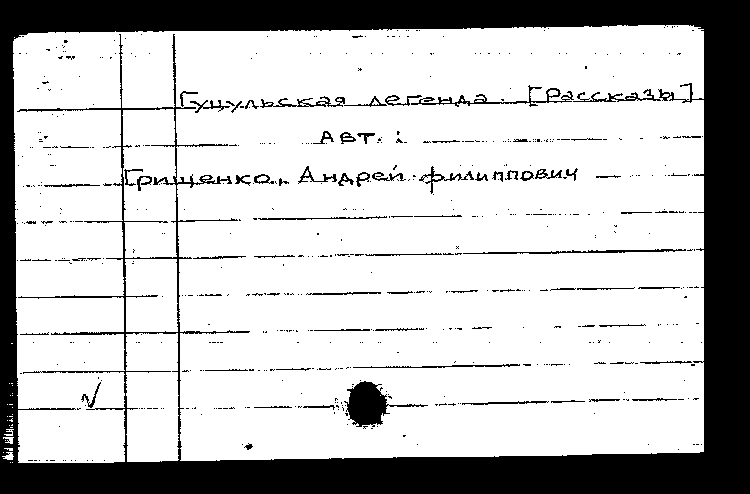 Гуцульская легенда. [Рассказы]
Авт.:
Грищенко, Андрей Филиппович